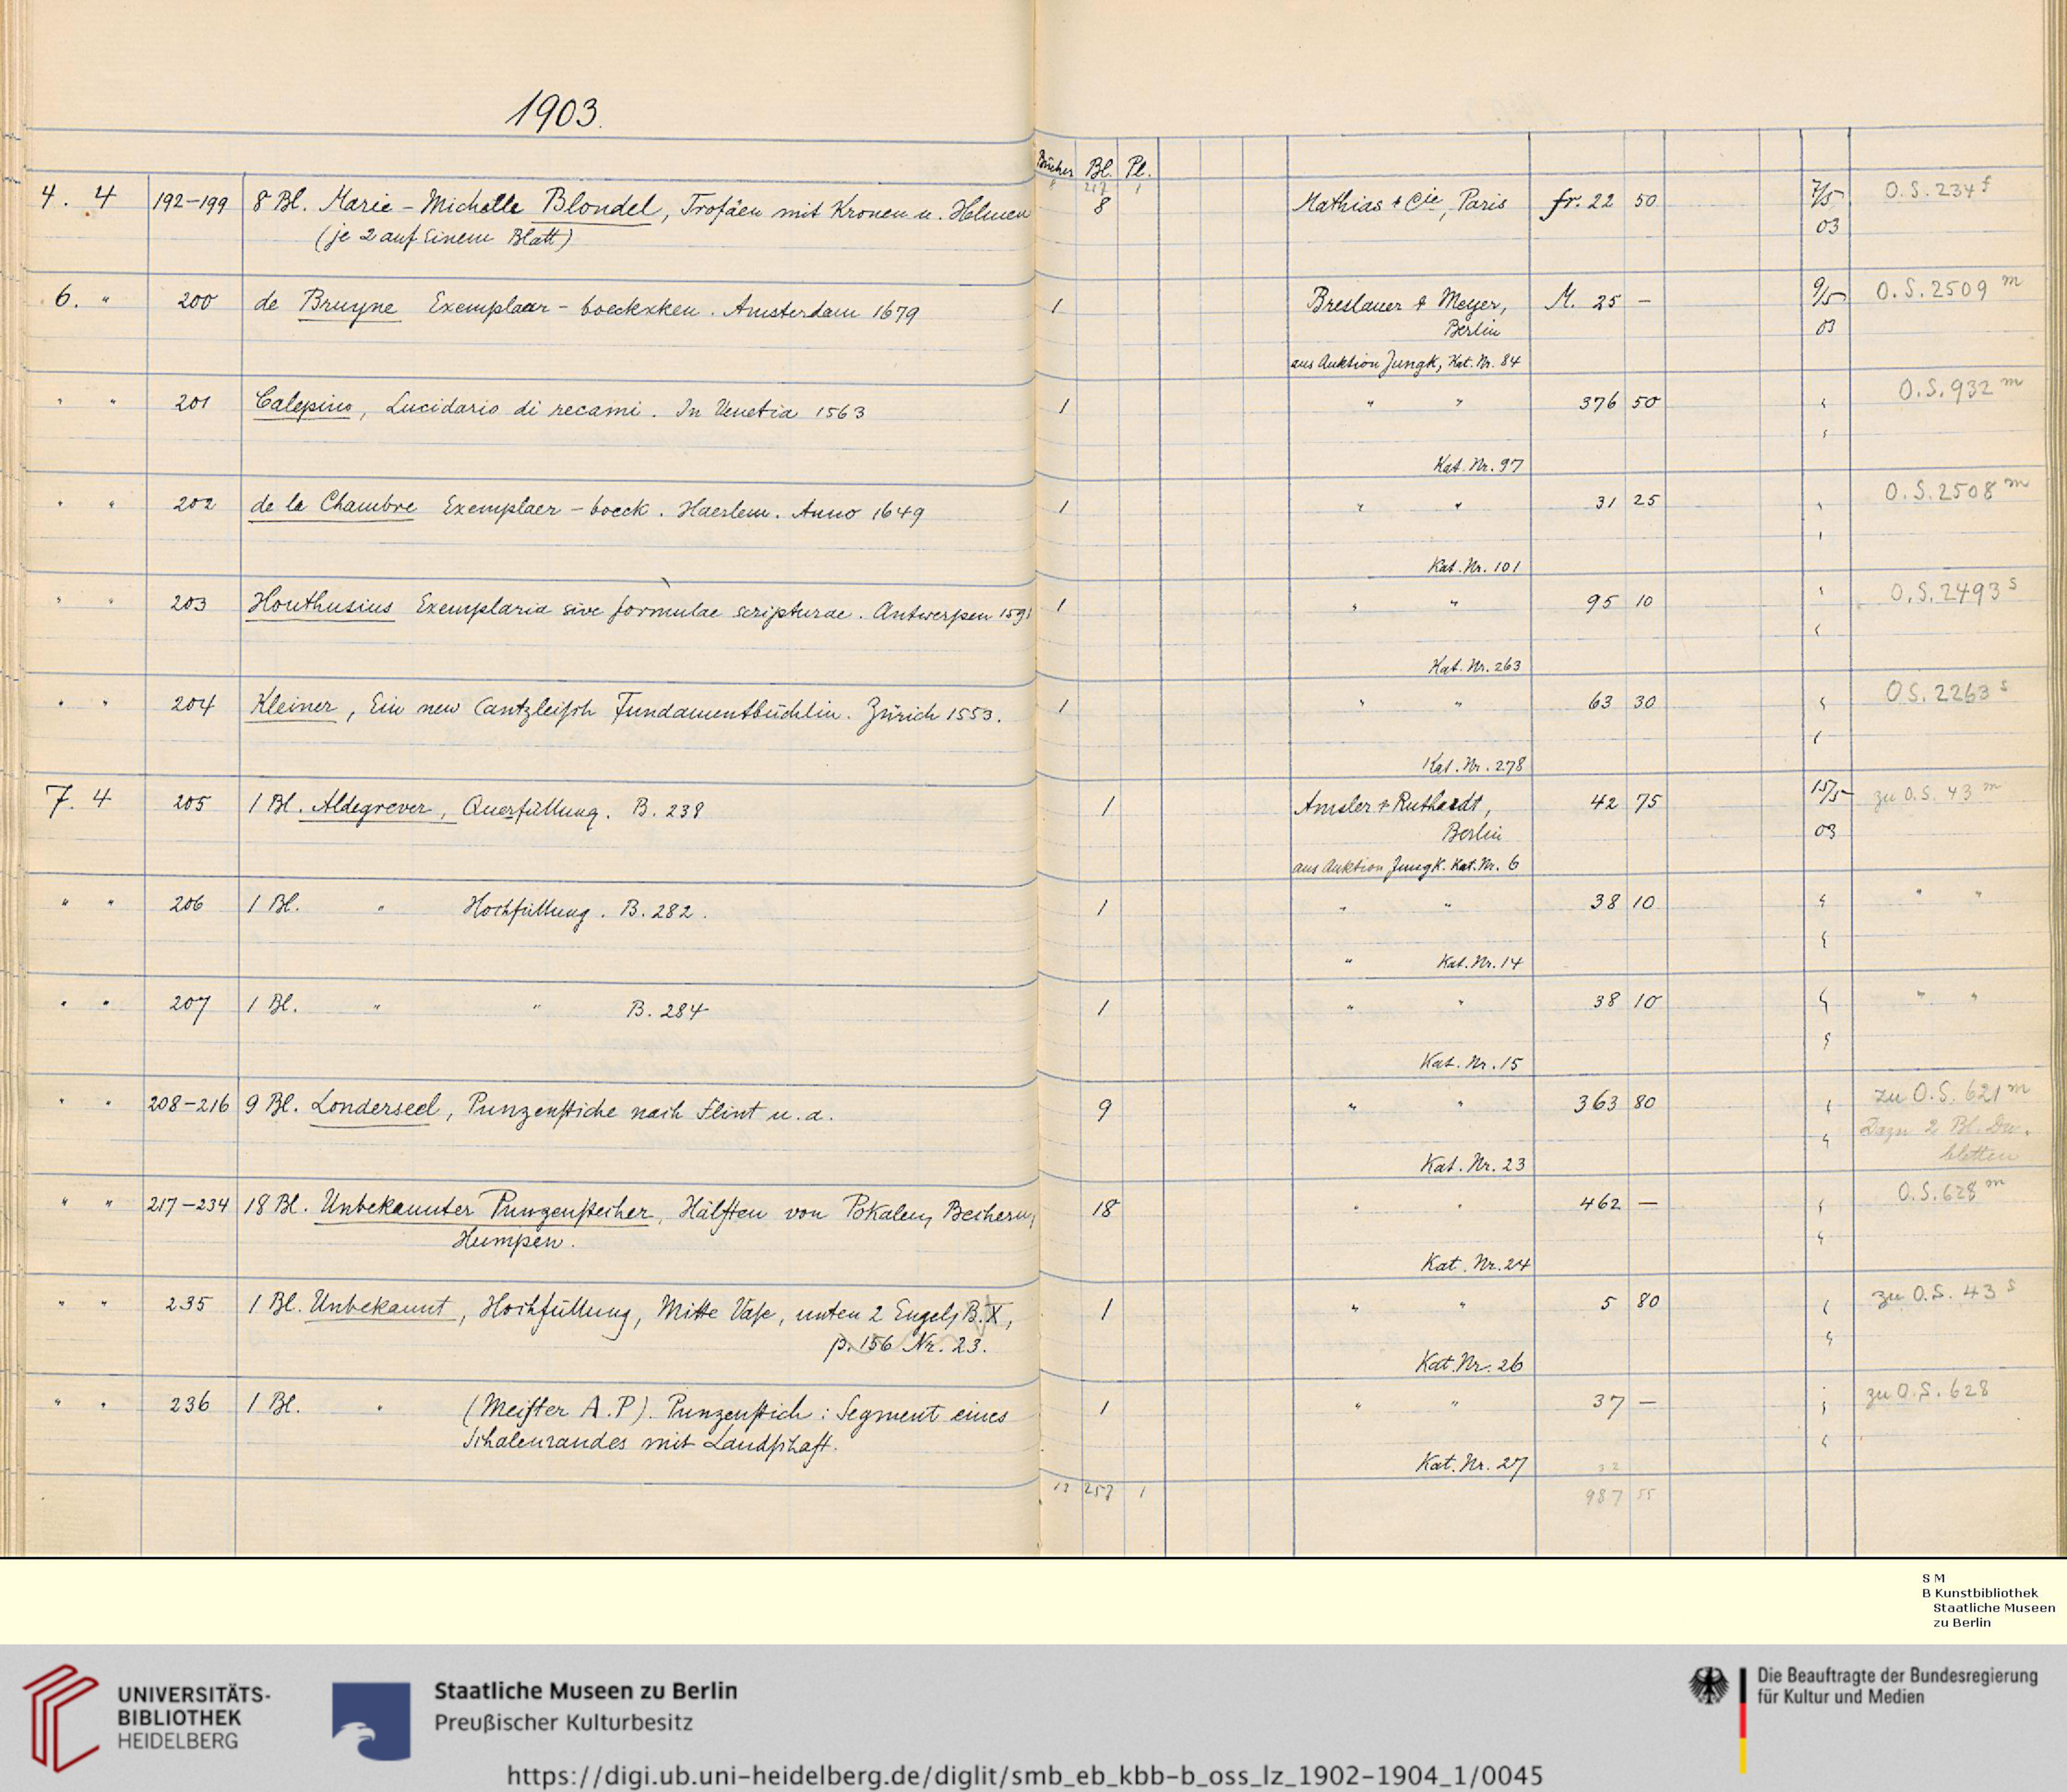 1903.
Bücher Bl. Pl.
8 217 1
4. 4 192-199 8 Bl. Marie-Michelle Blondel, Trofäen mit Kronen u. Helmen 8 Mathias & Cie, Paris fr. 22 50 7/5 O.S. 234 f
(je 2 auf Einem Blatt) 03
6. " 200 de Bruyne Exemplaar-boeckxken. Amsterdam 1679 1 Breslauer & Meyer, M. 25 - 9/5 O.S. 2509 m
Berlin 03
aus Auktion Jungk, Kat. Nr. 84
" " 201 Calepino, Lucidario di recami. In Venetia 1563 1 " " 376 50 " O.S. 932 m
"
Kat. Nr. 97
" " 202 de la Chambre Exemplaer-boeck. Haerlem. Anno 1649 1 " " 31 25 " O.S. 2508 m
"
Kat. Nr. 101
" " 203 Houthusius Exemplaria sive formulae scripturae. Antwerpen 1591 1 " " 95 10 " O.S. 2493 s
"
Kat. Nr. 263
" " 204 Kleiner, Ein new Cantzleisch Fundamentbüchlin. Zürich 1553. 1 " " 63 30 " O.S. 2263 s
"
Kat. Nr. 278
7. 4 205 1 Bl. Aldegrever, Querfüllung. B. 238 1 Amsler & Ruthardt, 42 75 15/5 zu O.S. 43 m
Berlin 03
aus Auktion Jungk. Kat. Nr. 6
" " 206 1 Bl. " Hochfüllung. B. 282. 1 " " 38 10 " " "
"
" Kat. Nr. 14
" " 207 1 Bl. " " B. 284 1 " " 38 10 " " "
"
Kat. Nr. 15
" " 208-216 9 Bl. Londerseel, Punzenstiche nach Flint u. a. 9 " " 363 80 " zu O.S. 621 m
" Dazu 2 Bl. Du-
Kat. Nr. 23 bletten
" " 217-234 18 Bl. Unbekannter Punzenstecher, Hälften von Pokalen, Bechern, 18 " " 462 - " O.S. 628 m
Humpen. "
Kat. Nr. 24
" " 235 1 Bl. Unbekannt, Hochfüllung, Mitte Vase, unten 2 Engel, B. X, 1 " " 5 80 " zu O.S. 43 s
p. 156 Nr. 23. "
Kat. Nr. 26
" " 236 1 Bl. " (Meister A. P). Punzenstich: Segment eines 1 " " 37 - " zu O.S. 628
Schalenrandes mit Landschaft. "
Kat. Nr. 27
13 257 1 987 55
S M
B Kunstbibliothek
Staatliche Museen
zu Berlin
UNIVERSITÄTS-
BIBLIOTHEK
HEIDELBERG
Staatliche Museen zu Berlin
Preußischer Kulturbesitz
Die Beauftragte der Bundesregierung
für Kultur und Medien
https://digi.ub.uni-heidelberg.de/diglit/smb_eb_kbb-b_oss_lz_1902-1904_1/0045